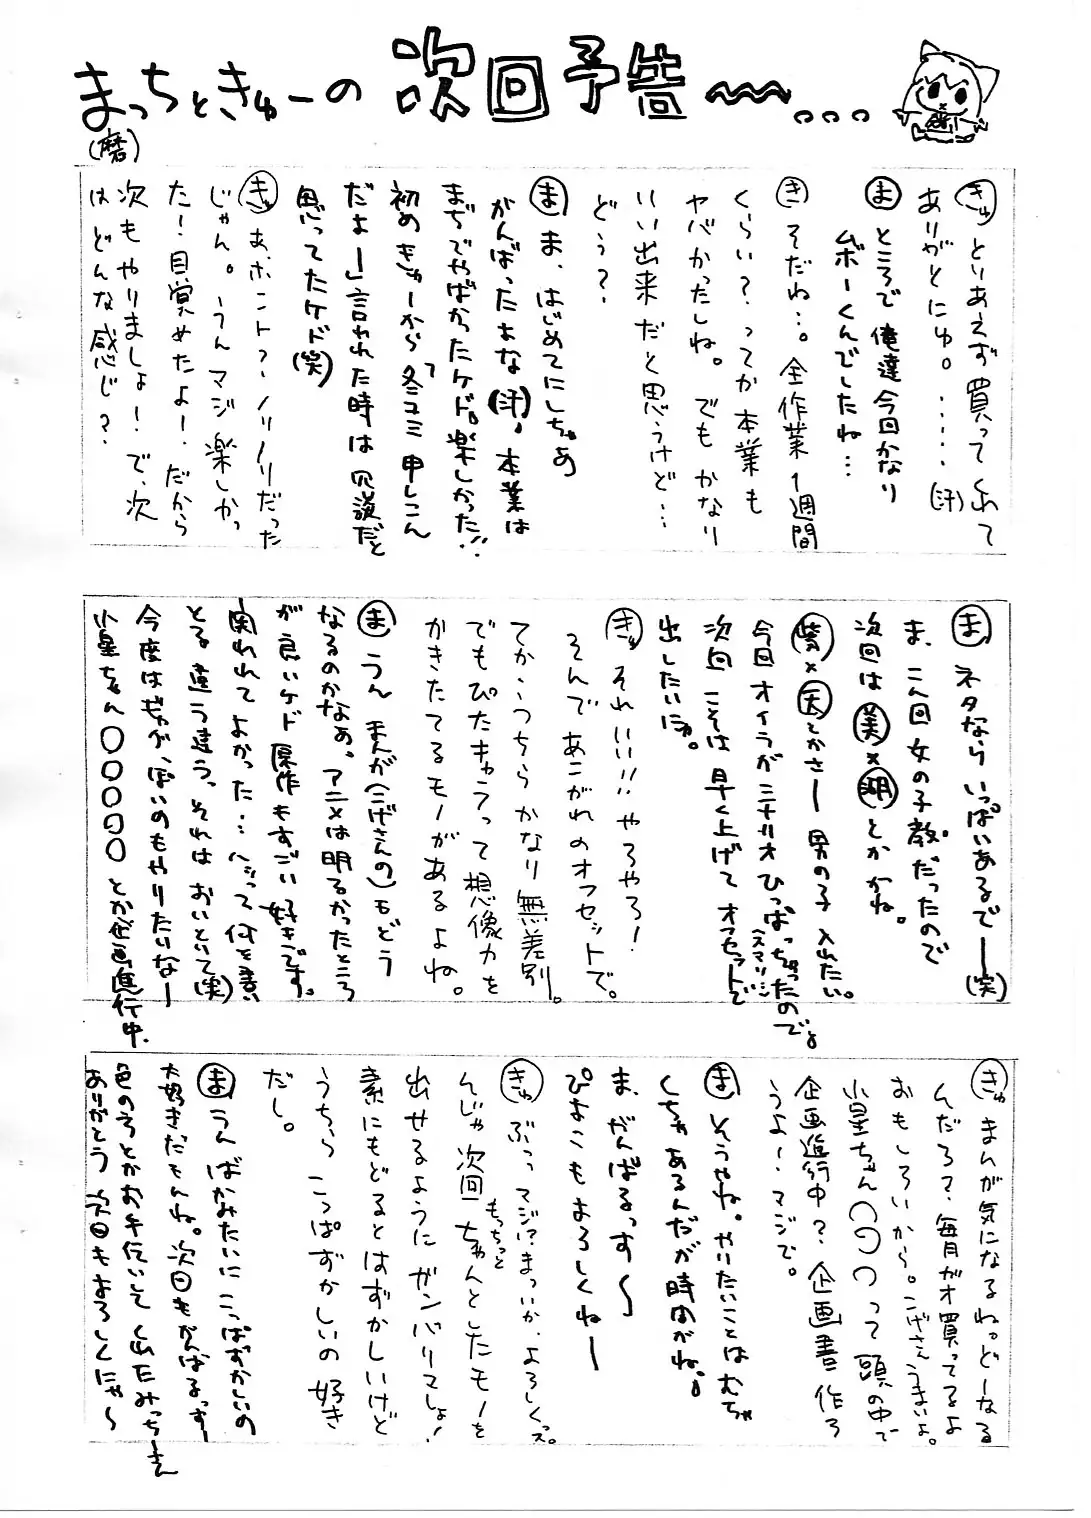 まっちときゅーの 次回予告〜〜...
(磨)
きゅ とりあえず買ってくれて
ありがとにゅ。・・・・・(汗)
ま ところで俺達今回かなり
ムボーくんでしたね…
き そだね…。全作業1週間
くらい？ってか本業も
ヤバかったしね。でもかなり
いい出来だと思うけど…
どう？
ま ま、はじめてにしちゃあ
がんばったよな(汗)、本業は
まぢでやばかったケド。楽しかった!!
初めきゅーから「冬コミ申しこん
だよー」言われた時は冗談だと
思ってたケド(笑)
きゅ あ、ホント？ノリノリだった
じゃん。うんマジ楽しかっ
たー！目覚めたよー。だから
次もやりましょ！で、次
はどんな感じ？
ま ネタならいっぱいあるでー(笑)
ま、こん回女の子教だったので
次回は美×湖とかかね。
紫×天とかさー男の子入れたい。
今回オイラがシナリオひっぱっちゃったのでよ
(スマソ)
次回こそは早く上げてオフセットで
出したいにゅ。
きゅ それいい!!やろやろ！
そんであこがれのオフセットで。
てかうちらかなり無差別。
でもぴたキャラって想像力を
かきたてるモノがあるよね。
ま うん まんが(こげさんの)もどう
なるのかなぁ。アニメは明るかったところ
が良いケド原作もすごい好きです。
実れれてよかった…へって何を書い
とる違う違うっそれはおいといて(笑)
今度はギャグっぽいのもやりたいなー
小星ちゃん〇〇〇〇〇とか企画進行中.
きゅ まんが気になるねっどーなる
んだろ？、毎月ガオ買ってるよ
おもしろいから。こげさんうまいよ。
小星ちゃん〇〇〇って頭の中で
企画進行中？企画書作ろ
うよー、マジで。
ま そうやね。やりたいことはむちゃ
くちゃあるんだが時間がね。
ま、がんばるっす〜
ぴよこもよろしくねー
きゅ ぶっっマジ!?まっいっか、よろしくっス。
んじゃ次回もっちっとちゃんとしたモノを
出せるようにガンバリマしょ！
素にもどるとはずかしいけど
うちらこっぱずかしいの好き
だし。
ま うん ばかみたいにこっぱずかしいの
大好きだもんね。次回もがんばるっすー
色のろとかお手伝いしてくれたみっちーさん
ありがとう 次回もよろしくにゃ〜